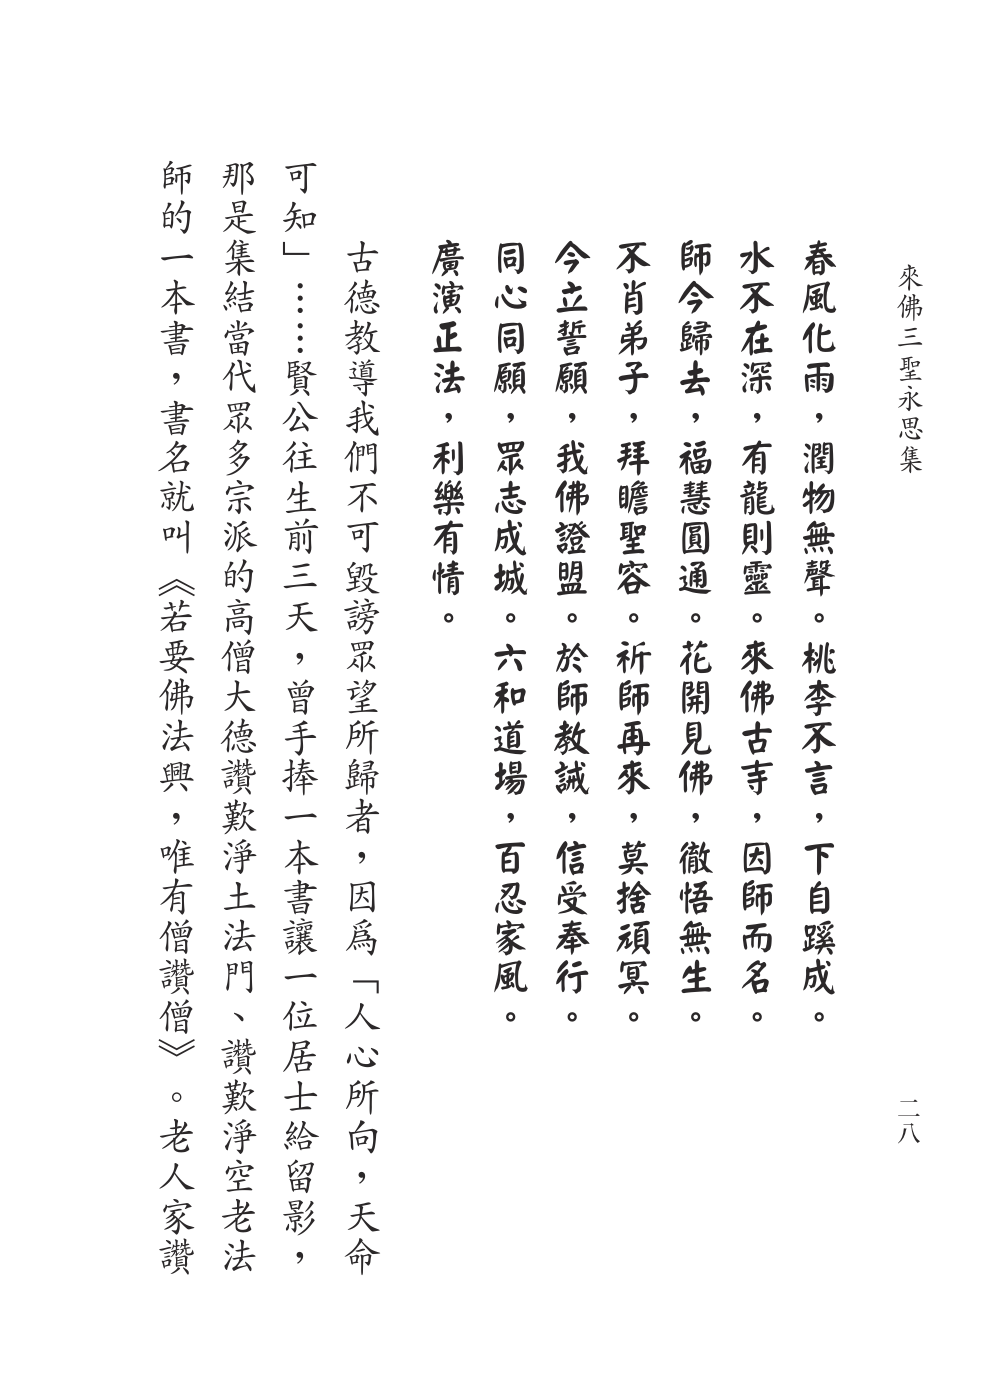 來佛三聖永思集
二八
春風化雨，潤物無聲。桃李不言，下自蹊成。
水不在深，有龍則靈。來佛古寺，因師而名。
師今歸去，福慧圓通。花開見佛，徹悟無生。
不肖弟子，拜瞻聖容。祈師再來，莫捨頑冥。
今立誓願，我佛證盟。於師教誡，信受奉行。
同心同願，眾志成城。六和道場，百忍家風。
廣演正法，利樂有情。
古德教導我們不可毀謗眾望所歸者，因爲「人心所向，天命
可知」……賢公往生前三天，曾手捧一本書讓一位居士給留影，
那是集結當代眾多宗派的高僧大德讚歎淨土法門、讚歎淨空老法
師的一本書，書名就叫《若要佛法興，唯有僧讚僧》。老人家讚